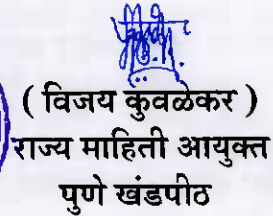 ( विजय कुवळेकर )
राज्य माहिती आयुक्त
पुणे खंडपीठ